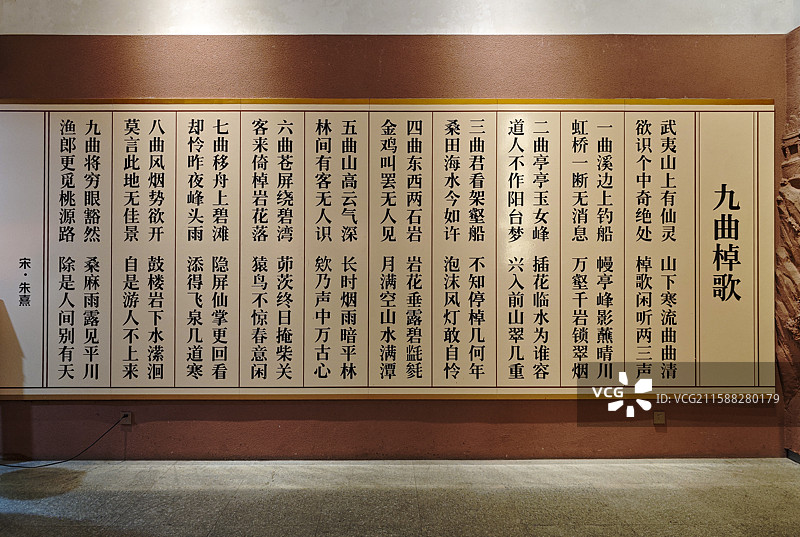 九曲棹歌
武夷山上有仙灵 山下寒流曲曲清
欲识个中奇绝处 棹歌闲听两三声
一曲溪边上钓船 幔亭峰影蘸晴川
虹桥一断无消息 万壑千岩锁翠烟
二曲亭亭玉女峰 插花临水为谁容
道人不作阳台梦 兴入前山翠几重
三曲君看架壑船 不知停棹几何年
桑田海水今如许 泡沫风灯敢自怜
四曲东西两石岩 岩花垂露碧㲯毵
金鸡叫罢无人见 月满空山水满潭
五曲山高云气深 长时烟雨暗平林
林间有客无人识 欸乃声中万古心
六曲苍屏绕碧湾 茆茨终日掩柴关
客来倚棹岩花落 猿鸟不惊春意闲
七曲移舟上碧滩 隐屏仙掌更回看
却怜昨夜峰头雨 添得飞泉几道寒
八曲风烟势欲开 鼓楼岩下水潆洄
莫言此地无佳景 自是游人不上来
九曲将穷眼豁然 桑麻雨露见平川
渔郎更觅桃源路 除是人间别有天
宋·朱熹
VCG
VCG ID:VCG211588280179